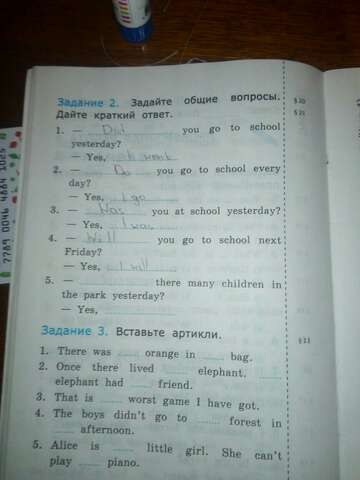 Задание 2. Задайте общие вопросы. § 20
Дайте краткий ответ. § 21
1. — Did you go to school
yesterday?
— Yes, I went
2. — Do you go to school every
day?
— Yes, I go
3. — Was you at school yesterday?
— Yes, I was
4. — Will you go to school next
Friday?
— Yes, I will
5. — there many children in
the park yesterday?
— Yes,
Задание 3. Вставьте артикли.
1. There was orange in bag.
2. Once there lived elephant.
elephant had friend.
3. That is worst game I have got.
4. The boys didn't go to forest in
afternoon.
5. Alice is little girl. She can't
play piano.